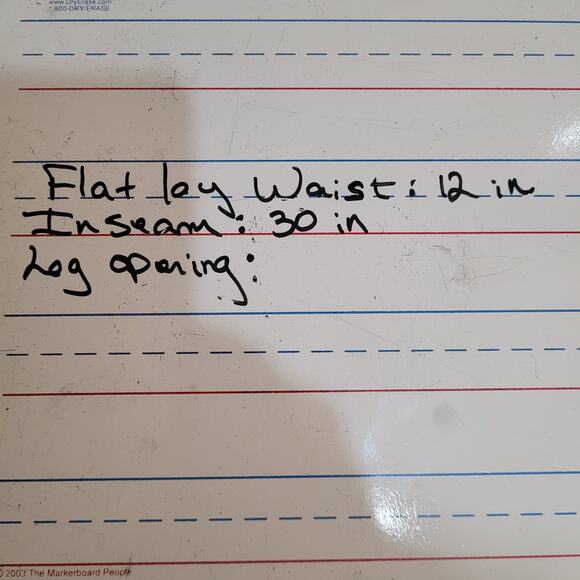 www.DryErase.com
800-DRY-ERASE
Flat lay Waist: 12 in
Inseam: 30 in
Leg opening:
© 2003 The Markerboard People